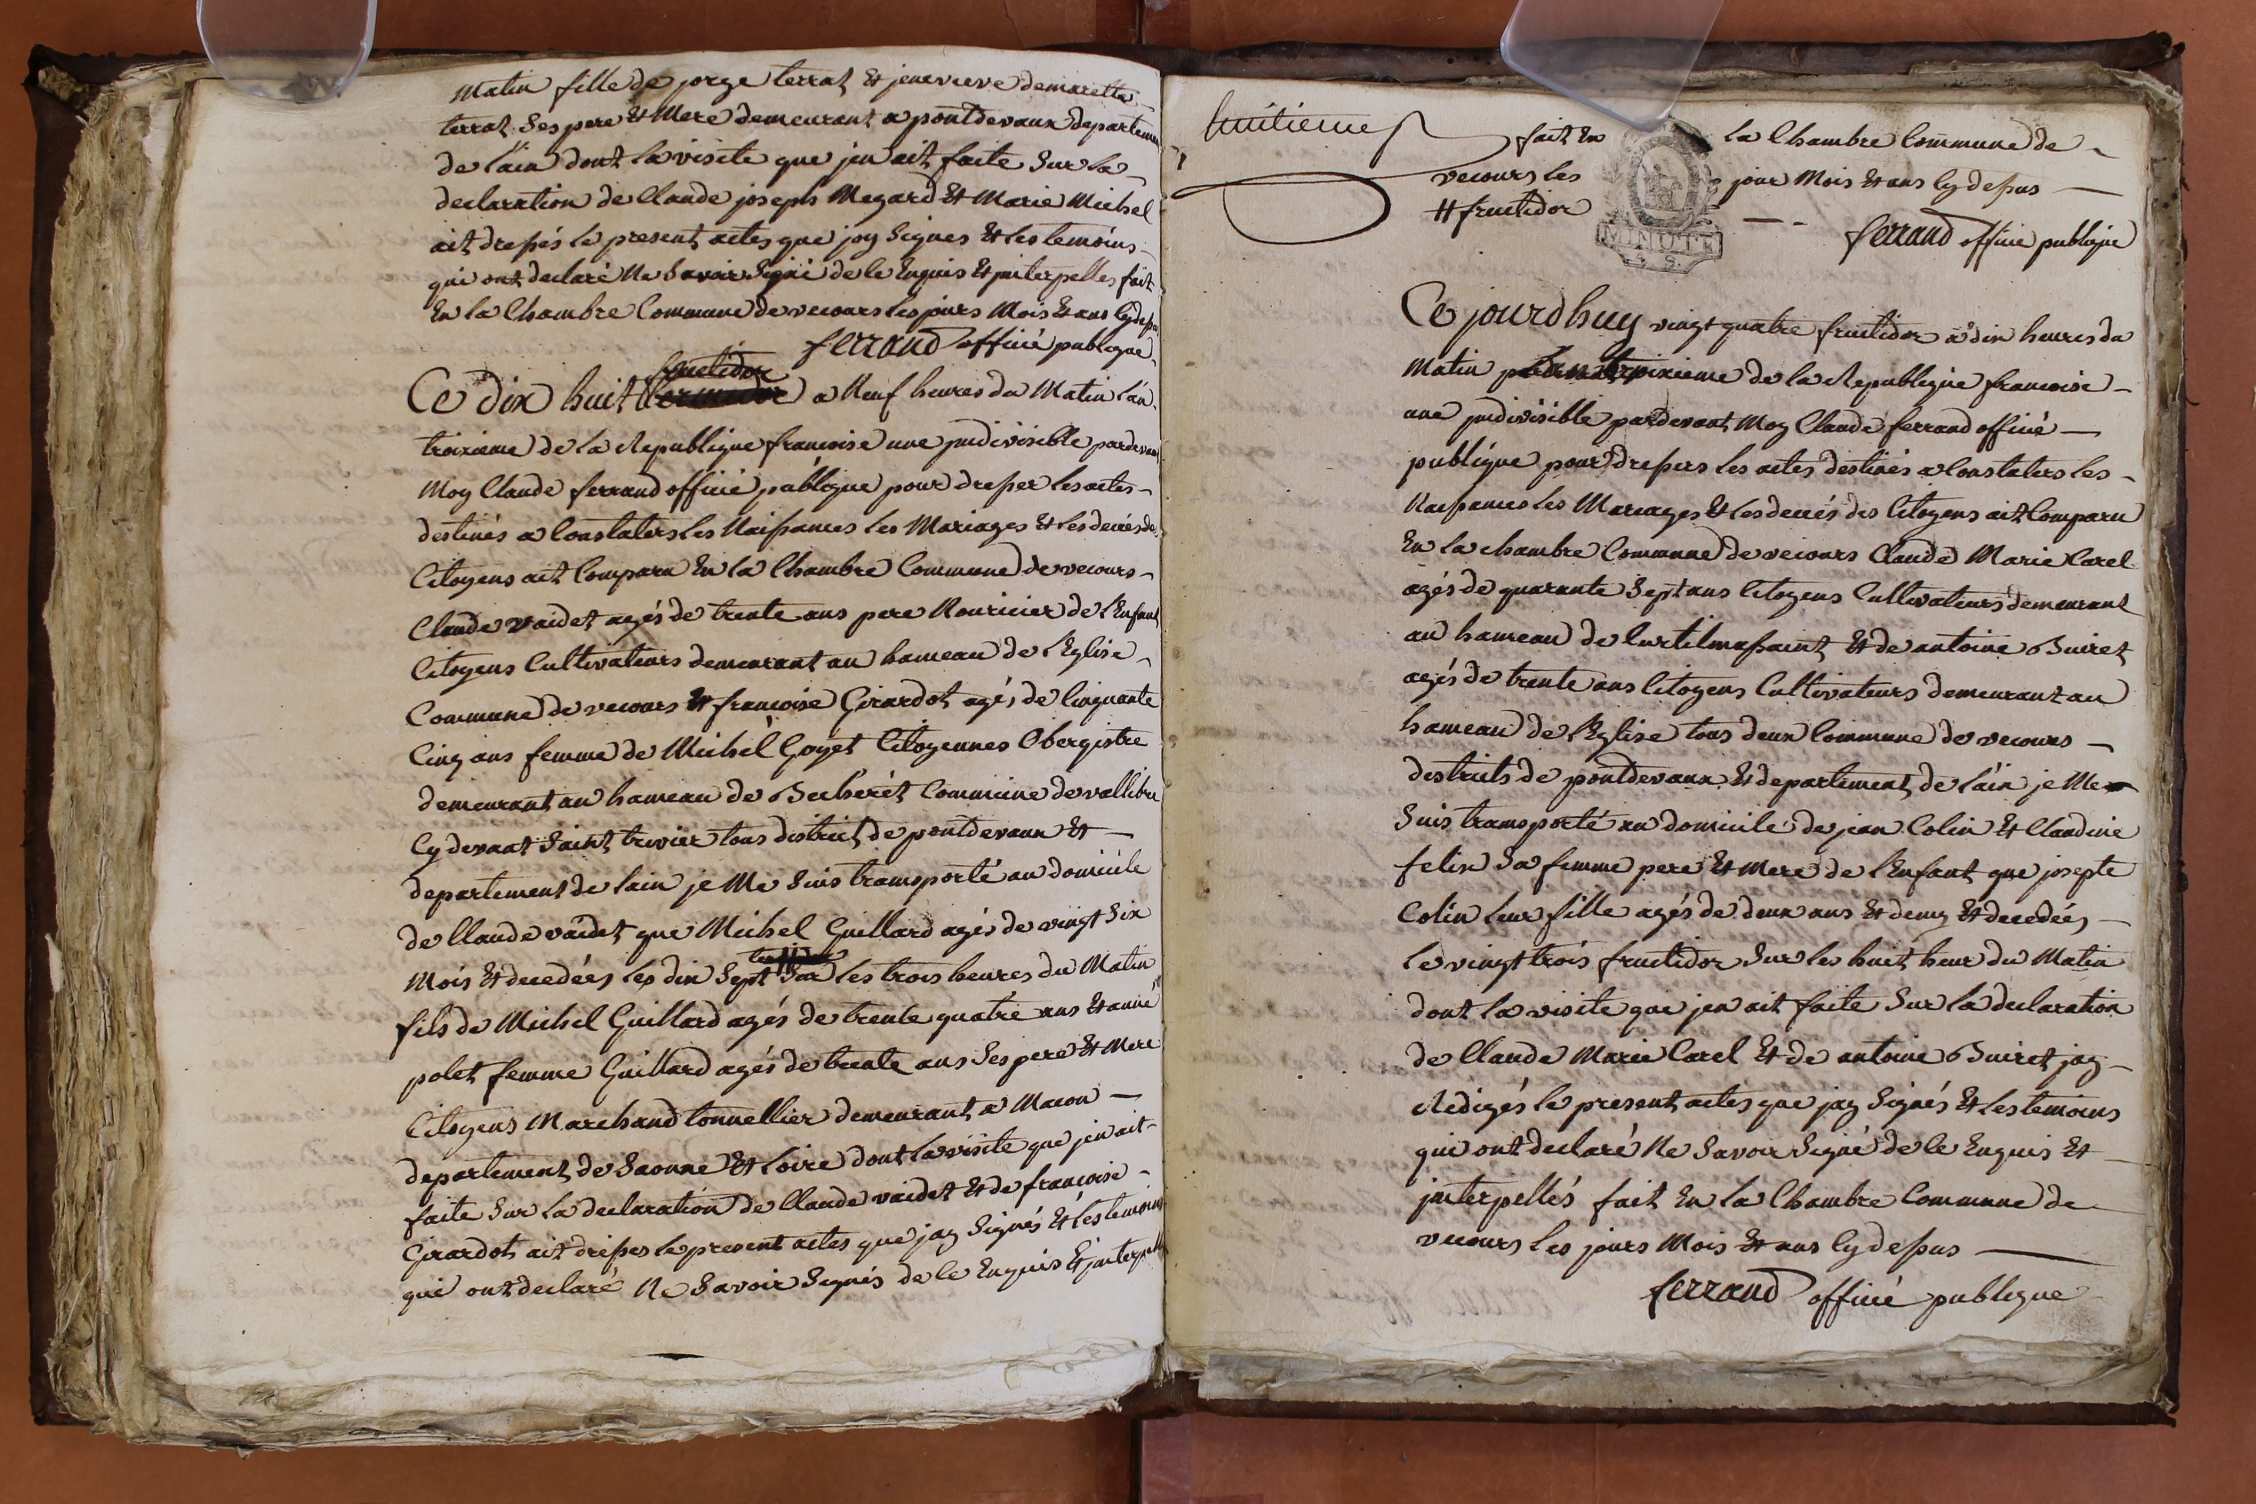 Matin fille de jorge terrat Et jenevieve demarette
terrat Ses pere Et Mere demeurant a pontdevaux departemen
de l'ain dont la visite que jen ait faite Sur la
declaration de Claude joseph Megard Et Marie Michel
ait dressés le present actes que jay Signes Et les temoins
qui ont declaré Ne Savoir Signé de le Enquis Et jnterpelles fait
En la Chambre Commune de vecours les jours Mois Et ans Cy dessu
ferrand officié publique
fructidor
Ce dix huit a Neuf heures du Matin l'an
troixieme de la Republique francoise une jndivisible pardevant
Moy Claude ferrand officié publique pour dresser les actes
destinés a Constaters les Naissances les Mariages Et les decés de
Citoyens ait Comparu En la Chambre Commune de vecours
Claude vaidet agés de trente ans pere Nouricier de l'Enfant
Citoyens Cultivateurs demeurant au hameau de l'Eglise
Commune de vecours Et francoise Girardot agés de Cinquante
Cinq ans femme de Michel Goyet Citoyennes Obergistre
demeurant au hameau de Becheret Commune de vallibre
Cy devant Saint trivier tous district de pontdevaux Et
departement de lain je Me Suis transporté au domicile
de Claude vaidet que Michel Guillard agés de vingt Six
Mois Et decedées les dix Sept Sur les trois heures du Matin
fils de Michel Guillard agés de trente quatre ans Et anne
polet femme Guillard agés de trente ans Ses pere Et Mere
Citoyens Marchand tonnellier demeurant a Macon
departement de Saonne Et Loire dont la visite que jen ait
faite Sur la declaration de Claude vaidet Et de francoise
Girardot ait dresses le present actes que jay Signés Et les temoins
qui ont declaré Ne Savoir Signés de le Enquis Et jnterpelle
huitieme
fait En la Chambre Commune de
vecours les jour Mois Et ans Cy dessus
# fructidor
MINUTE
ferrand officié publique
Ce jourdhuy vingt quatre fructidor a dix heures du
Matin troixieme de la Republique francoise
une jndivisible pardevant Moy Claude ferrand officié
publique pour dressers les actes destinés a Constaters les
Naissances les Mariages Et les decés des Citoyens ait Comparu
En la chambre Commune de vecours Claude Marie Carel
agés de quarante Sept ans Citoyens Cultivateurs demeurant
au hameau de Curtilmassaint Et de antoine Buiret
agés de trente ans Citoyens Cultivateurs demeurant au
hameau de l'Eglise tous deux Commune de vecours
destricts de pontdevaux Et departement de l'ain je Me
Suis transporté au domicile de jean Colin Et Claudine
felix Sa femme pere Et Mere de l'Enfant que josepte
Colin leur fille agés de deux ans Et demy Et decedées
le vingt trois fructidor Sur les huit heur du Matin
dont la visite que jen ait faite Sur la declaration
de Claude Marie Carel Et de antoine Buiret jay
Redigés le present actes que jay Signés Et les temoins
qui ont declaré Ne Savoir Signé de le Enquis Et
jnterpellés fait En la Chambre Commune de
vecours les jours Mois Et ans Cy dessus
ferrand officié publique